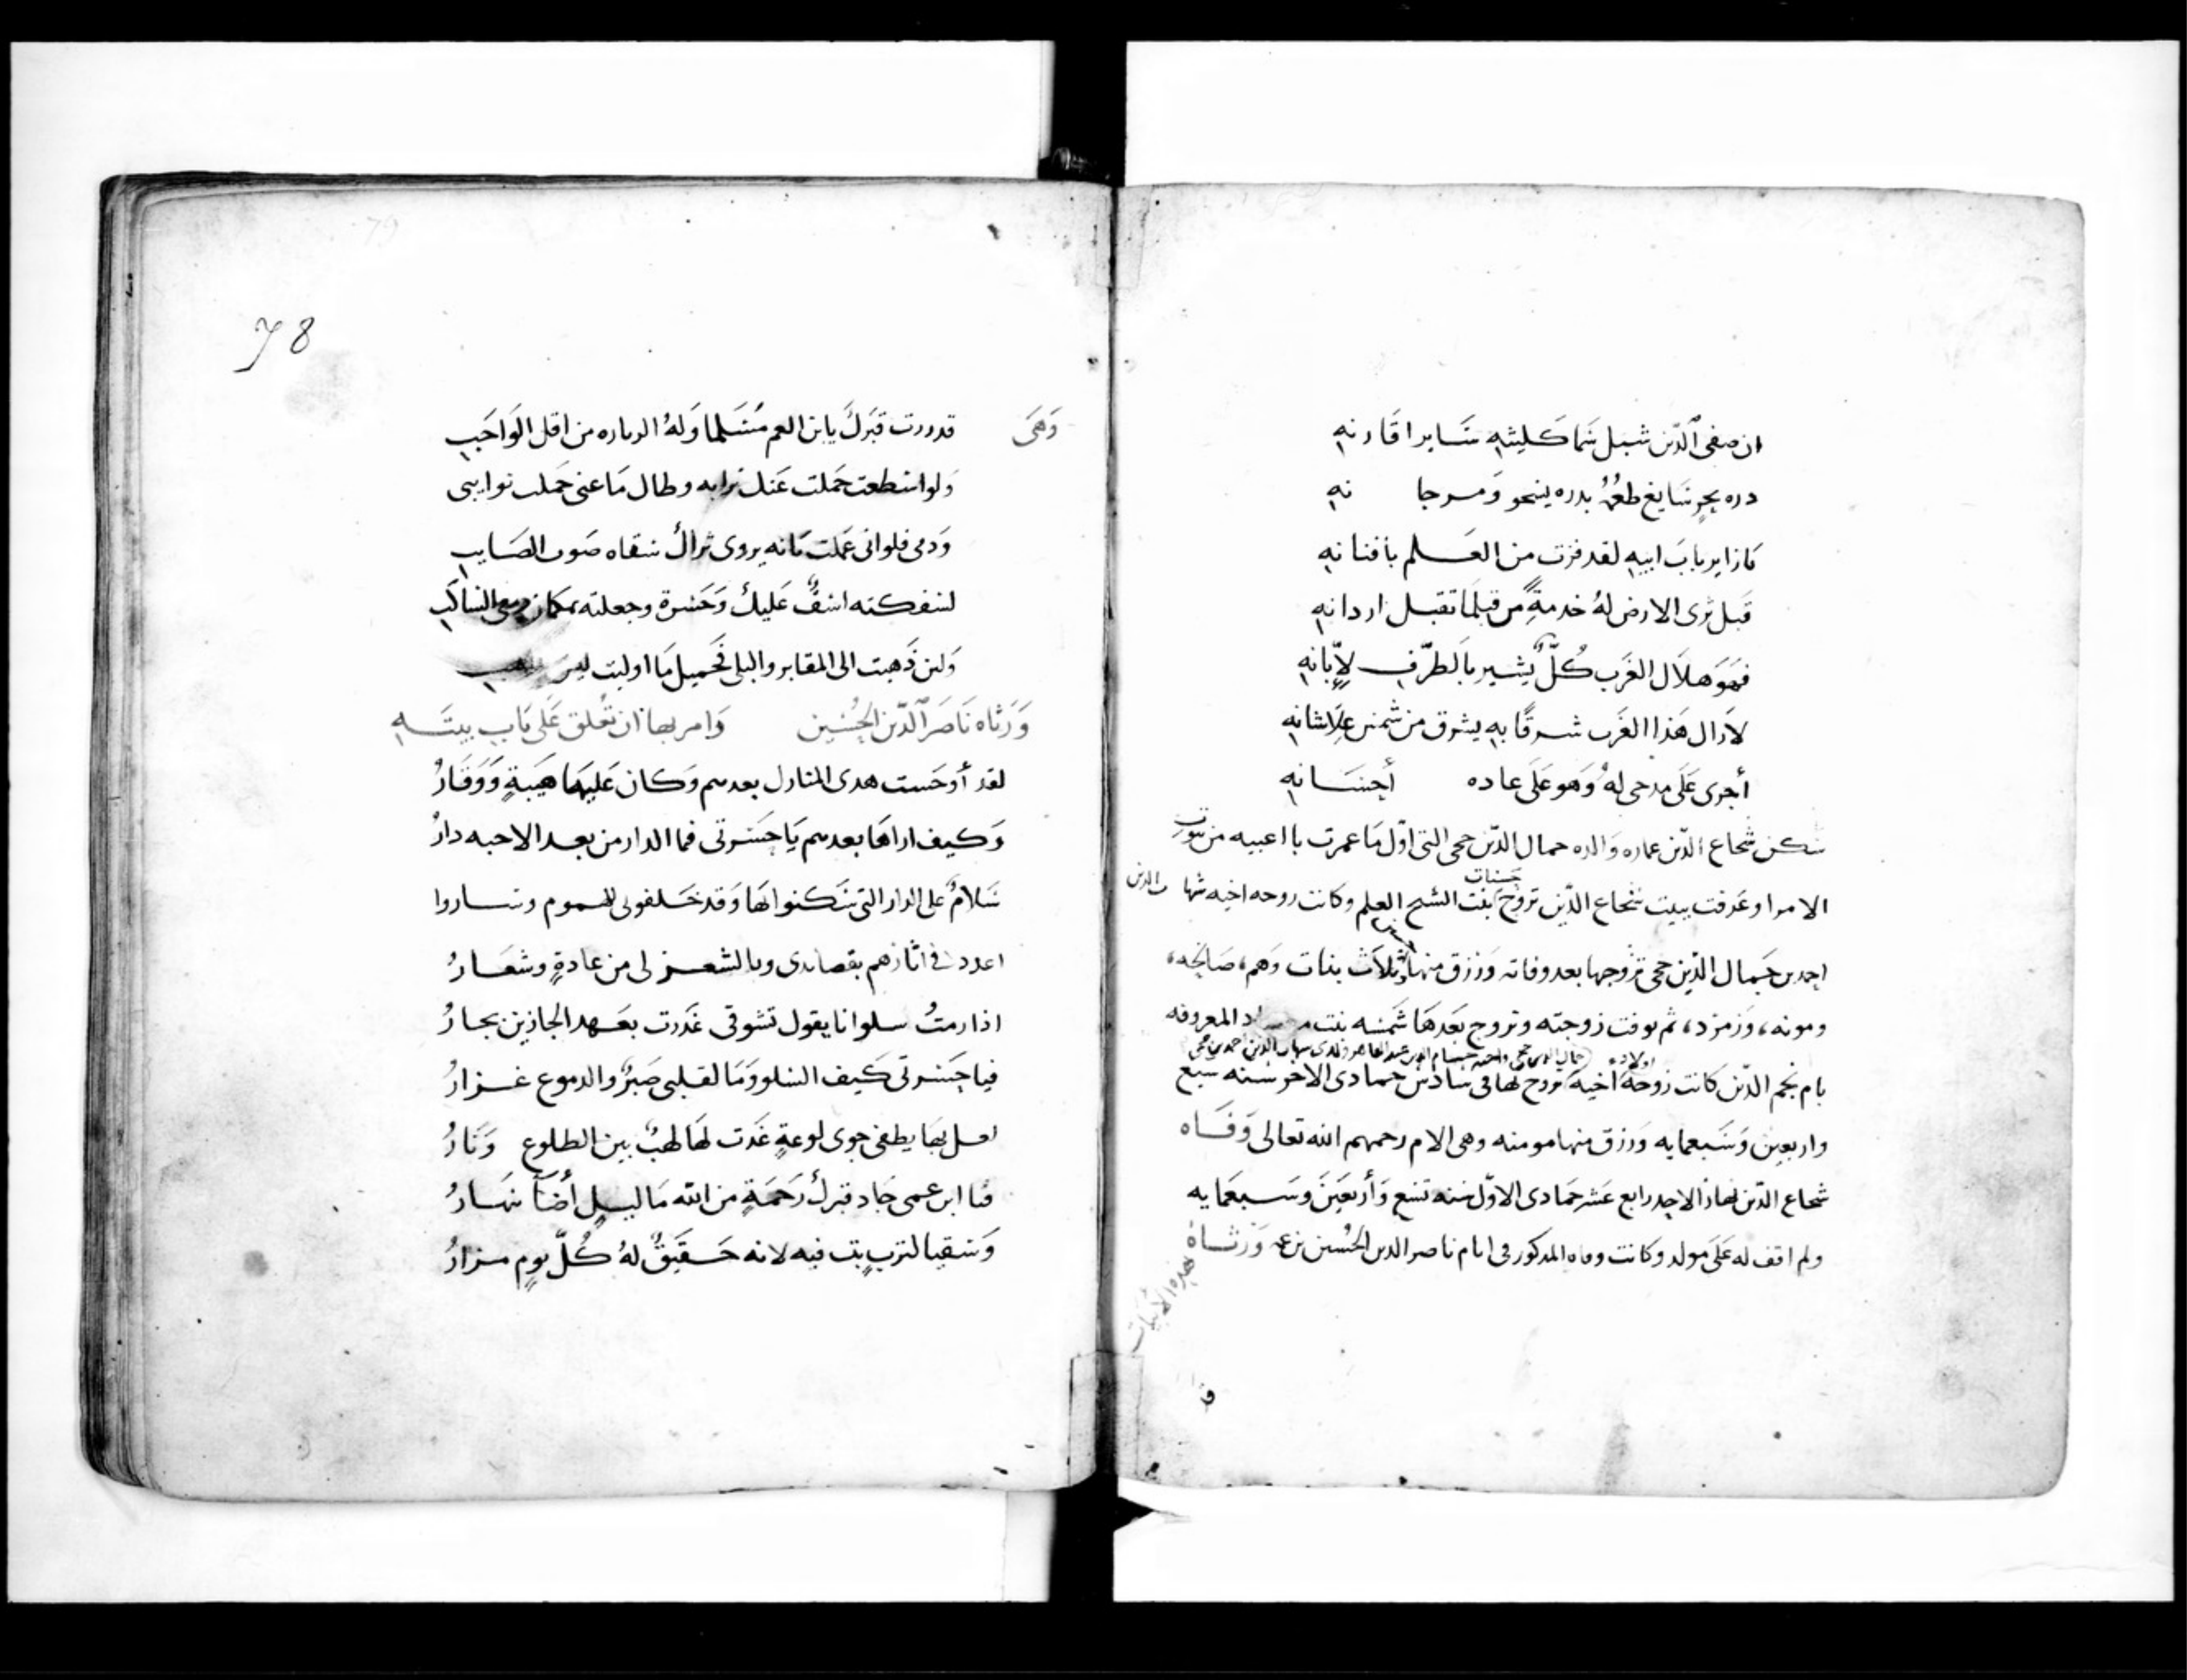 ان صفى الدّين شبل سَما كليثه سَاير اقارنه
دره بحر سَايغ طعْمُهُ بدره ينحو وَمرجا نه
مَازا ير بابَ ابيه لقد فزت من العَلم بافنانه
قَبل ثرى الارض لهُ خدمةً من قبل مَا تقبل اردانه
فهوَ هلَال الغَرب كُلٌّ يُشير بالطرّف لإبّانه
لازال هَذا الغَرب شرقًا به يشرق من شمس عِلَا شانه
أجرى عَلَى مدحى لهُ وَهو عَلَى عاده أحِسَانه
سَكن شُجاع الدّين عماره وَالده جمال الدّين حجى التى اوّل مَا عمرت با اعبيه من بيوت
الامرا وعَرفت ببيت شجاع الدّين تزوج حسنات بنت الشيخ العلم وكانت زوجه اخيه شهاب الدين
احمد بن جَمال الدّين حجى تزوجها بعد وفاته وَرزق منها ثلاَث بنات وَهم، صَالحه،
ومونه، وَزمرد، ثم توفت زوجته وتزوج بعدَهَا شمسَه بنت المعروفه
بام نجم الدّين كانت زوجة اخيه تزوج لها فى سَادس جمادى الاخر سنه سَبع
اولاده جمال الدين حجى واخته حسام الدين عبد القاهر ولدى شهاب الدين احمد بن حجى
واربعين وَسَبعمايه وَرزق منها مومنه وهى الام رحمهم الله تعالى وَفَاه
شجاع الدّين نهار الاحد رابع عَشر جمَادى الاوّل سنه تسَع وَأربعَين وسَبعمَايه
ولم اقف له عَلَى مولد وكانت وفاه المدكور فى ايام ناصر الدين الحُسين بن عمه وَرثاهُ
بهذه الأبيَات
قد
78
وَهىَ قد زرت قبَركَ يا بن العم مُسَلما وَلهُ الزياره من اقل الوَاجَب
وَلو استطعت حَملت عَنك ترابه وطال مَا عنى حَملت نوايبى
وَدمى فلو انى عَلمت بَانه يروى ثراك سَقاه صَوب الصَايب
لسَفكته اسَفٌ عَليك وَحَسرة وجعلته مكان دمعى السَاكب
وَلئن ذَهبت الى المقابر والبلى فَجَميل مَا اوليت ليسَ بذاهب
وَرَثاه نَاصَر الدّين الحُسَين وَامر بها ان تُعلق عَلَى بَاب بيتَه
لقد أوحَست هدى المنازل بعدهم وَكان عَليهَا هَيبَةٍ وَوَقَارُ
وَكيف اراهَا بعدهم يَا حَسَرتى فما الدار من بعد الاحبه دارُ
سَلامٌ على الدار التى سَكنوا لهَا وَقد خَلفونى للهموم وسَاروا
اعدد فى اثارهم بقصايدى وبالشعر لى من عادةٍ وشعَارُ
اذا رمتُ سلوانا يقول تشوقى غَدرت بعَهد الجاذبين بجارُ
فيا حَسَرتى كيف السَلو وَمَا لقلبى صَبرٌ والدموع غزارُ
لعل بهَا يطفى جوى لوعةٍ غَدت لهَا لهبٌ بين الطلوع وَنَارُ
فيا ابن عمى جَاد قبرك رَحمَةٍ من الله مَا ليلٍ أضَآ نهَارُ
وَسَقيا لتربٍ بت فيه لانه حَقَيقٌ لهُ كُلّ يومٍ مزارُ